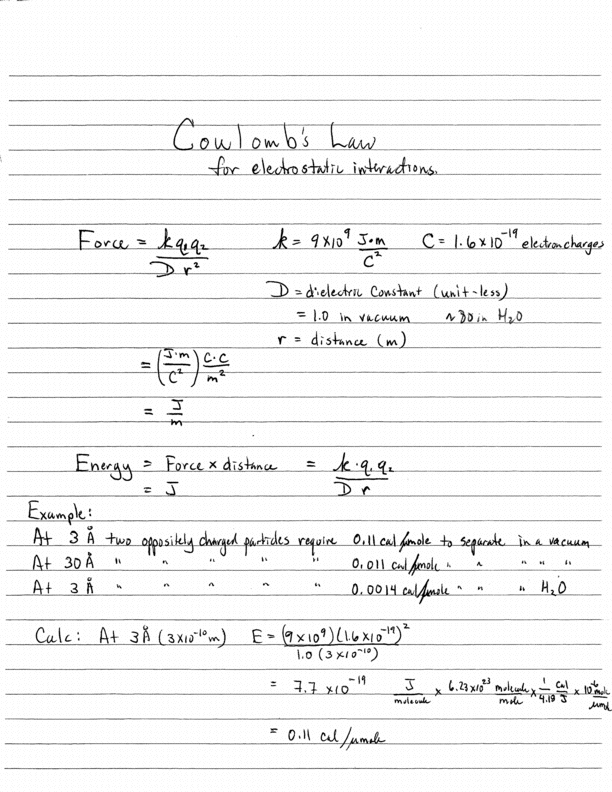 Coulomb's Law
for electrostatic interactions.
Force = k q₁q₂ / D r²    k = 9×10⁹ J·m / C²    C = 1.6×10⁻¹⁹ electron charges
D = dielectric constant (unit-less)
= 1.0 in vacuum    ~80 in H₂O
r = distance (m)
= (J·m / C²) C·C / m²
= J / m
Energy = Force × distance = k·q₁q₂ / D r
= J
Example:
At 3 Å two oppositely charged particles require 0.11 cal/μmole to separate in a vacuum
At 30 Å " " " " " 0.011 cal/μmole " " " " "
At 3 Å " " " " " 0.0014 cal/μmole " " " H₂O
Calc: At 3Å (3×10⁻¹⁰m)    E = (9×10⁹)(1.6×10⁻¹⁹)² / 1.0 (3×10⁻¹⁰)
= 7.7 ×10⁻¹⁹ J / molecule × 6.23×10²³ molecule / mole × 1 / 4.18 cal / J × 10⁻⁶ mol / μmol
= 0.11 cal/μmole